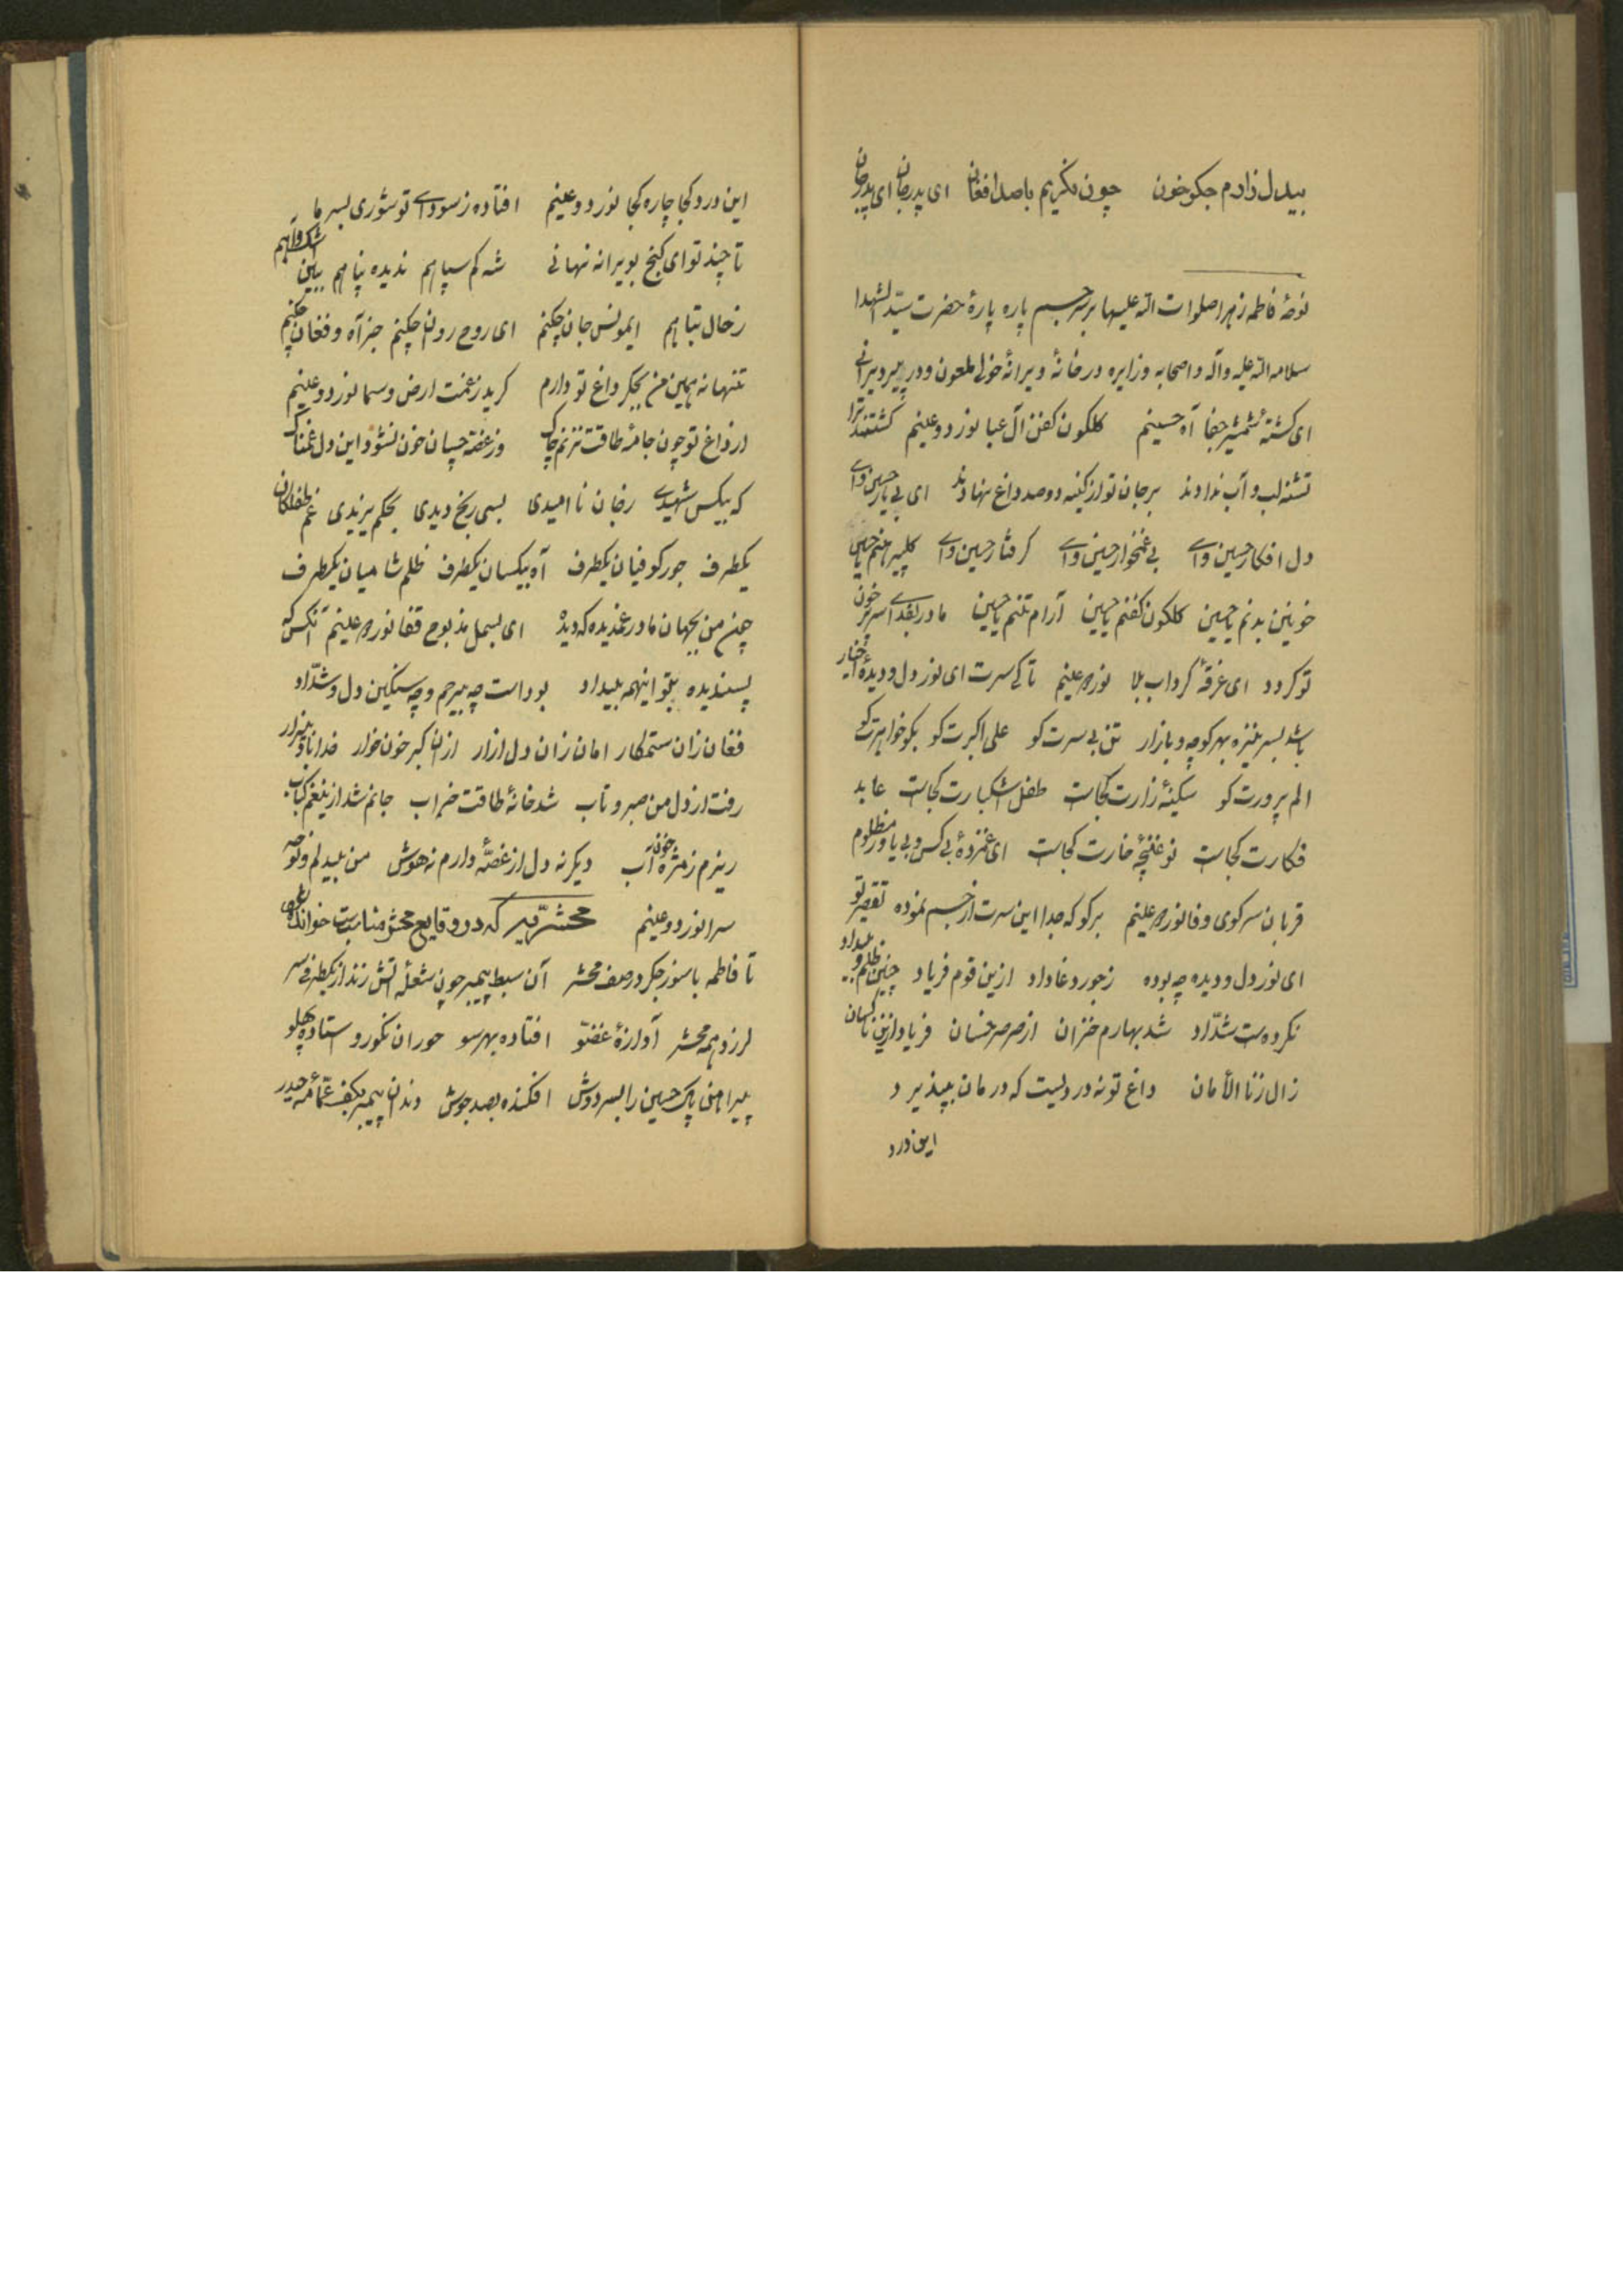 بیدل زارم جگر خون چون نگریم با صد افغان ای پدر جان ای پدر جان
نوحهٔ فاطمه زهرا صلوات الله علیها بر سر جسم پاره پارهٔ حضرت سیّد الشهدا
سلام الله علیه وآله و اصحابه و زایره در خانهٔ ویرانهٔ خولی ملعون و در پیر ویرانی
ای کشتهٔ شمشیر جفا آه حسینم گلگون کفن آل عبا نور دو عینم کشتند ترا
تشنه لب و آب ندادند بر جان تو از کینه دو صد داغ نهادند ای بی یار حسین وای
دل افکار حسین وای بی غمخوار حسین وای گرفتار حسین وای گل پیرهنم یا حسین
خونین بدنم یا حسین گلگون کفنم یا حسین آرام تنم یا حسین مادر بفدای سر پر خون
تو گردد ای غرقهٔ گرداب بلا نور دو عینم تا کی سرت ای نور دل و دیدهٔ اخیار
باشد بسر نیزه بهر کوچه و بازار تن بی سرت کو علی اکبرت کو بگو خواهرت کو
الم پرورت کو سکینهٔ زارت کجاست طفل اشکبارت کجاست عابد
فکارت کجاست نو غنچهٔ خارت کجاست ای غمزدهٔ بی کس و بی یاور مظلوم
قربان سر کوی وفا نور دو عینم برگو که جدا این سرت از جسم نموده تقصیر تو
ای نور دل و دیده چه بوده ز جور و غا داد ازین قوم فریاد چنین ظلم و بیداد
نکرده ست شدّاد شد بهارم خزان از صرصر خسان فریاد ازین ناکسان
زال زنا الأمان داغ تو نه دردیست که درمان بپذیرد
این درد
این درد کجا چاره کجا نور دو عینم افتاده ز سودای تو شوری بسر ما
تا چند تو ای گنج بویرانه نهانی شه کم سپاهم ندیده پناهم ببین اشک و آهم
ز حال تباهم ای مونس جان چکنم ای روح روان چکنم جز آه و فغان چکنم
تنها نه همین من بجگر داغ تو دارم گرید ز غمت ارض و سما نور دو عینم
از داغ تو چون جامهٔ طاقت نزنم چاک وز غصه چسان خون نشود این دل غمناک
که بیکس شهیدی ز جان نا امیدی بسی رنج دیدی بحکم یزیدی غم طفلکان
یکطرف جور کوفیان یکطرف آه بیکسان یکطرف ظلم شامیان یکطرف
چون من بجهان مادر غمدیده که دیده ای بسمل مذبوح قفا نور دو عینم آنکس که
پسندیده بتو اینهمه بیداد بوداست چه بیرحم و چه سنگین دل و شدّاد
فغان زان ستمکار امان زان دل ازار ازان گبر خون خوار
رفت از دل من صبر و تاب شد خانهٔ طاقت خراب جانم شد ازین غم کباب
ریزم ز مژه خون آب دیگر نه دل از غصّه دارم نه هوش من بیدلم و نوحه
سرا نور دو عینم محشریّه که در وقایع محشر مناسبت خواندن
تا فاطمه با سوز جگر در صف محشر آن سبط پیمبر چون شعلهٔ آتش زند از یکطرفی سر
لرزد همه محشر آوازهٔ غضّو افتاده بهر سو حوران نکورو ستاده پهلو
پیراهن پاک حسین را بسر دوش افکنده بصد جوش دندان پیمبر بکف عمّامهٔ حیدر